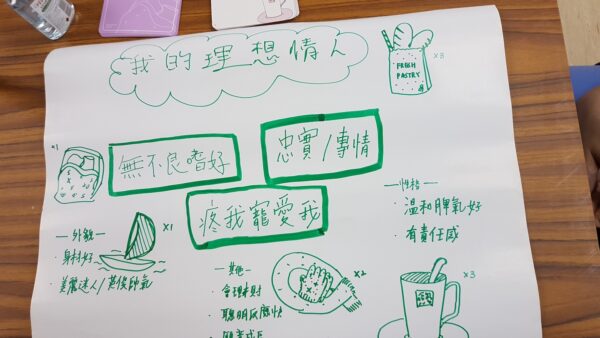 我的理想情人
FRESH
PASTRY
x3
x1
無不良嗜好
忠實/專情
疼我寵愛我
—外貌—
x1
· 身材好
· 美麗迷人/英俊帥氣
—性格—
· 溫和脾氣好
· 有責任感
—其他—
x2
· 會理財
· 聰明反應快
x3